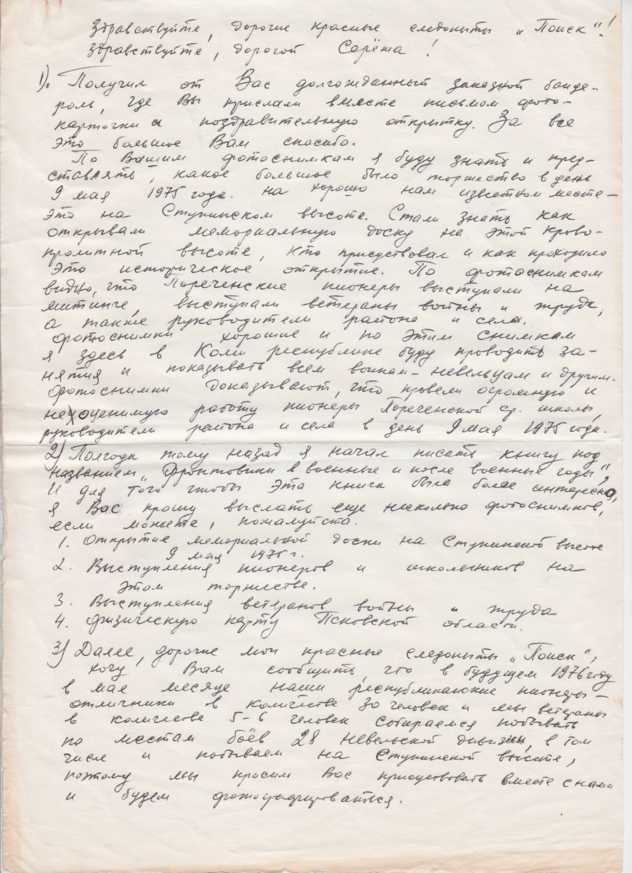 Здравствуйте, дорогие красные следопыты „Поиск"!
Здравствуйте, дорогой Сарёжа!
1). Получил от Вас долгожданный заказной банде-
роль, где Вы прислали вместе письмом фото-
карточки и поздравительную открытку. За все
это большое Вам спасибо.
По Вашим фотоснимкам я буду знать и пред-
ставлять, какое большое было торжество в день
9 мая 1975 года. на хорошо нам известном месте-
это на Ступинском высоте. Стали знать как
открывали мемориальную доску на этой крово-
пролитной высоте, кто присуствовал и как проходило
это историческое открытие. По фотоснимкам
видно, что Пореченские пионеры выступали на
митинге, выступали ветераны войны и труда,
а также руководители района и села.
Фотоснимки хорошие и по этим снимкам
я здесь в Коми республике буду проводить за-
нятия и показывать всем воинам-невельцам и другим.
Фотоснимки доказывают, что провели огромную и
неоценимую работу пионеры Пореченской ср. школы,
руководители района и села в день 9 мая 1975 года.
2) Полгода тому назад я начал писать книгу под
названием „Фронтовики в военные и после военные годы",
И для того чтобы эта книга была более интересна,
я Вас прошу выслать еще несколько фотоснимков,
если можете, пожалуйста.
1. Открытие мемориальной доски на Ступинской высоте
9 мая 1975 г.
2. Выступления пионеров и школьников на
этом торжестве.
3. Выступления ветеранов войны и труда
4. физическую карту Псковской области.
3) Далее, дорогие мои красные следопыты „Поиск",
хочу Вам сообщить, что в будущем 1976 году
в мае месяце наши республиканские пионеры-
отличники в количестве 30 человек и мы ветераны
в количестве 5-6 человек собираемся побывать
по местам боёв 28 Невельской дивизии, в том
числе и побываем на Ступинской высоте,
поэтому мы просим Вас присуствовать вместе с нами
и будем фотографироваться.